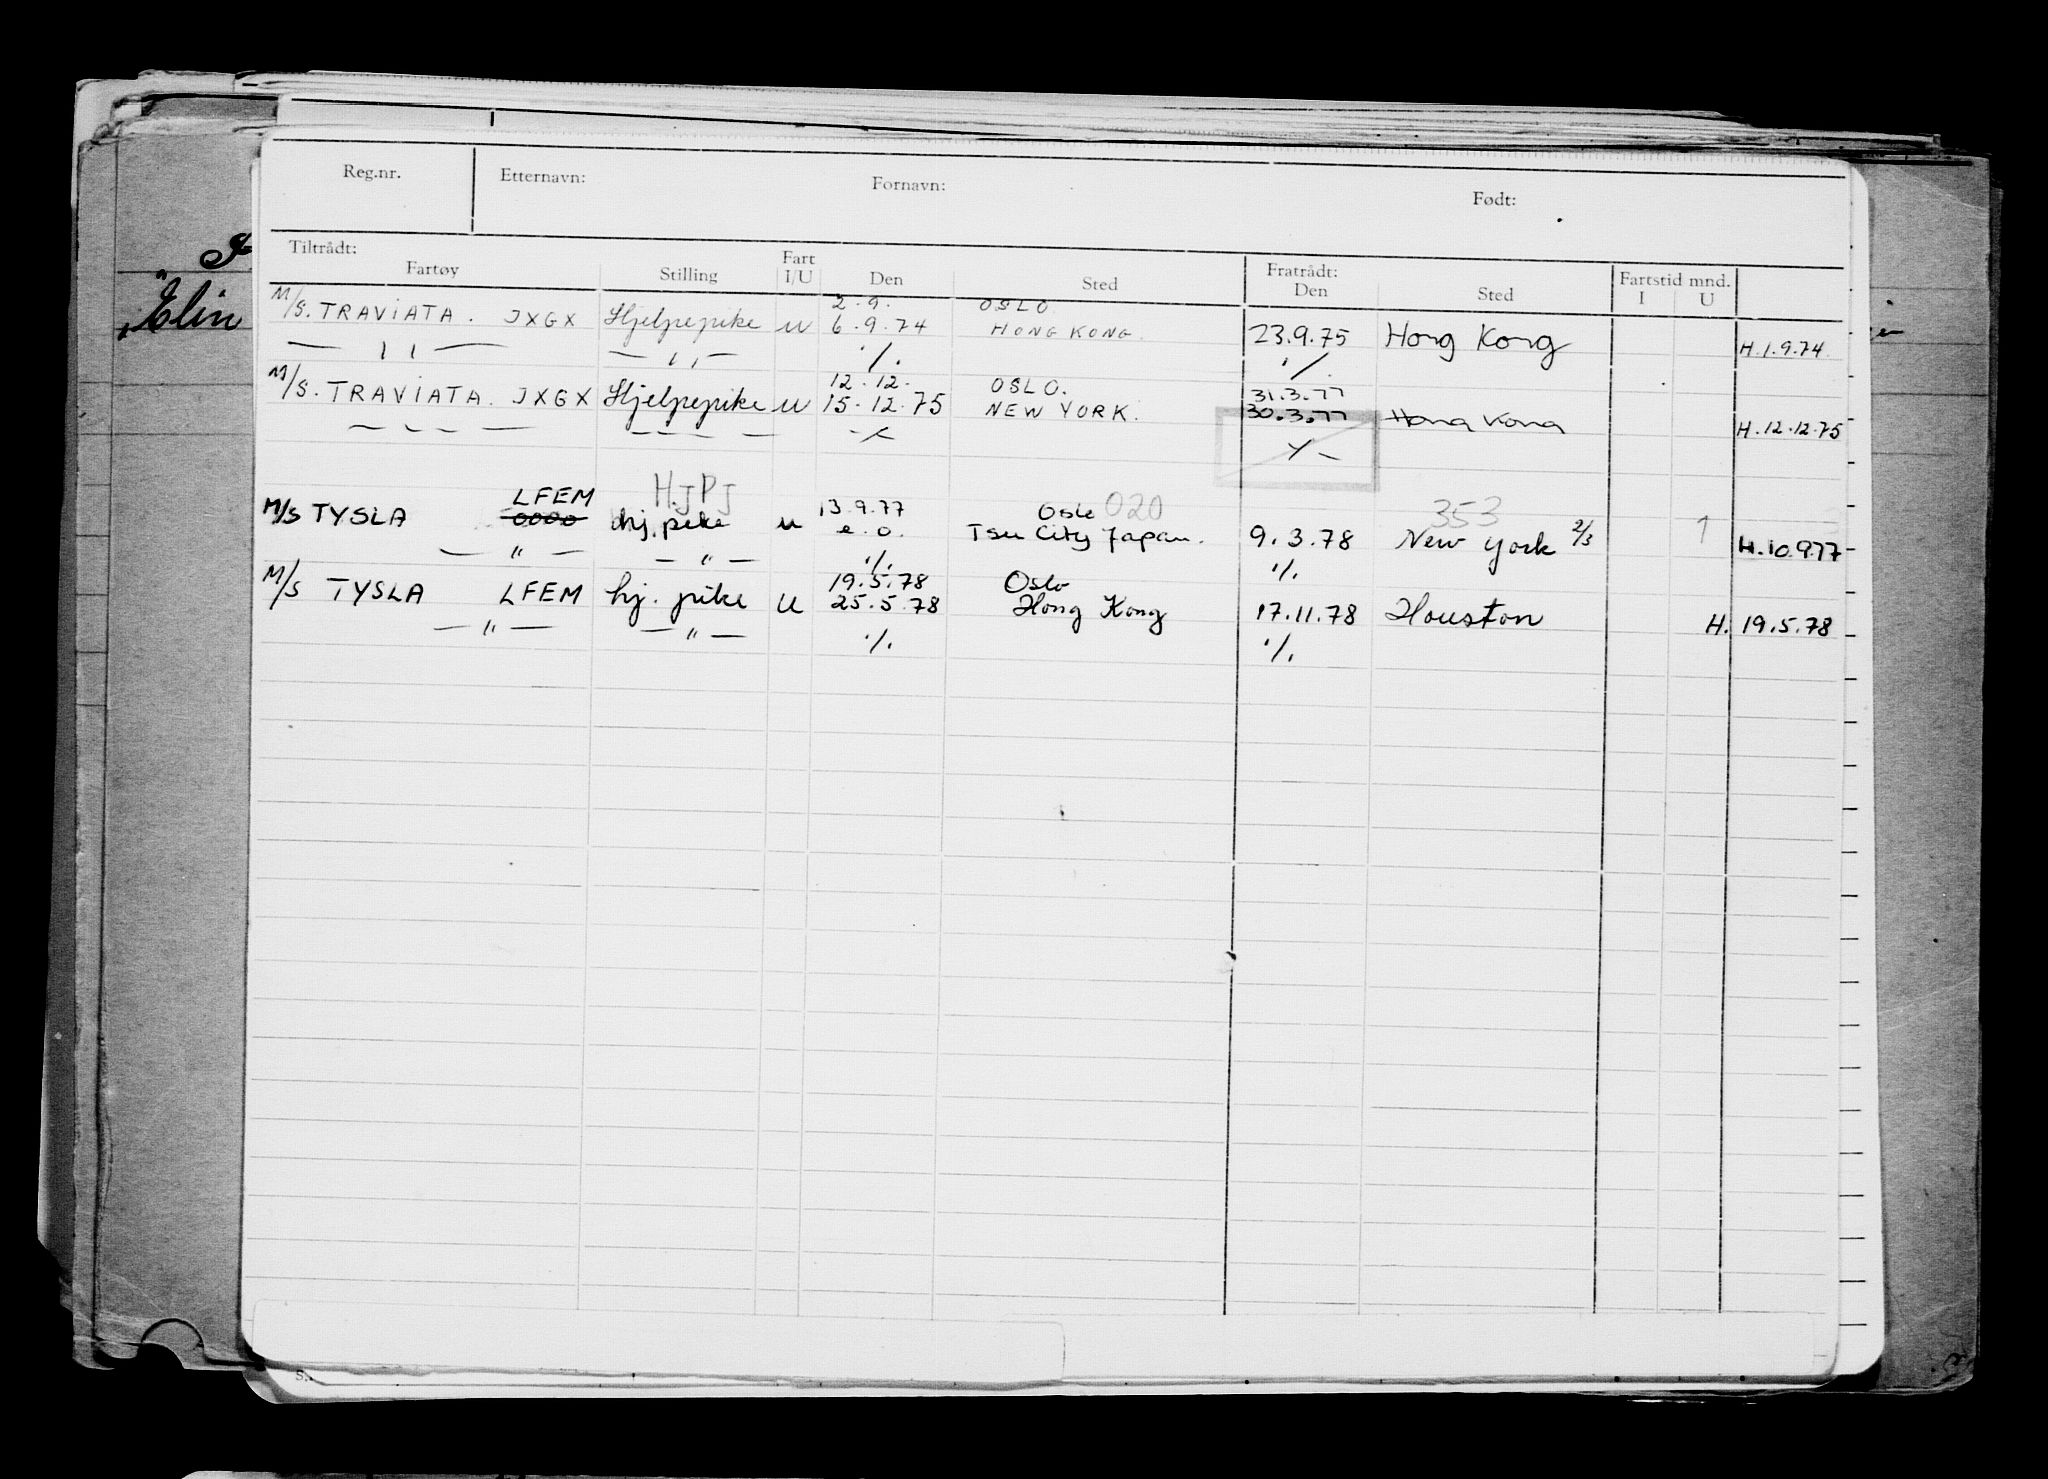 Reg.nr. Etternavn: Fornavn: Født:
Tiltrådt: Fartøy Stilling Fart I/U Den Sted Fratrådt: Den Sted Fartstid mnd. I U
2.9. OSLO
M/S. TRAVIATA. JXGX Hjelpepike u 6.9.74 HONG KONG. 23.9.75 Hong Kong H.1.9.74.
— ı ı — — ı ı — ·/. ·/.
12.12. OSLO. 31.3.77
M/S. TRAVIATA. JXGX Hjelpepike u 15.12.75 NEW YORK. 30.3.77 Hong Kong H.12.12.75
HJPJ
LFEM 13.9.77 Oslo 020 353
M/S TYSLA 0000 hj. pike u e.o. Tsu City Japan. 9.3.78 New York 2/3 1 H.10.9.77
— " — — " — ·/. ·/.
19.5.78 Oslo
M/S TYSLA LFEM hj. pike u 25.5.78 Hong Kong 17.11.78 Houston H. 19.5.78
— " — — " — ·/. ·/.
"Elin
S.